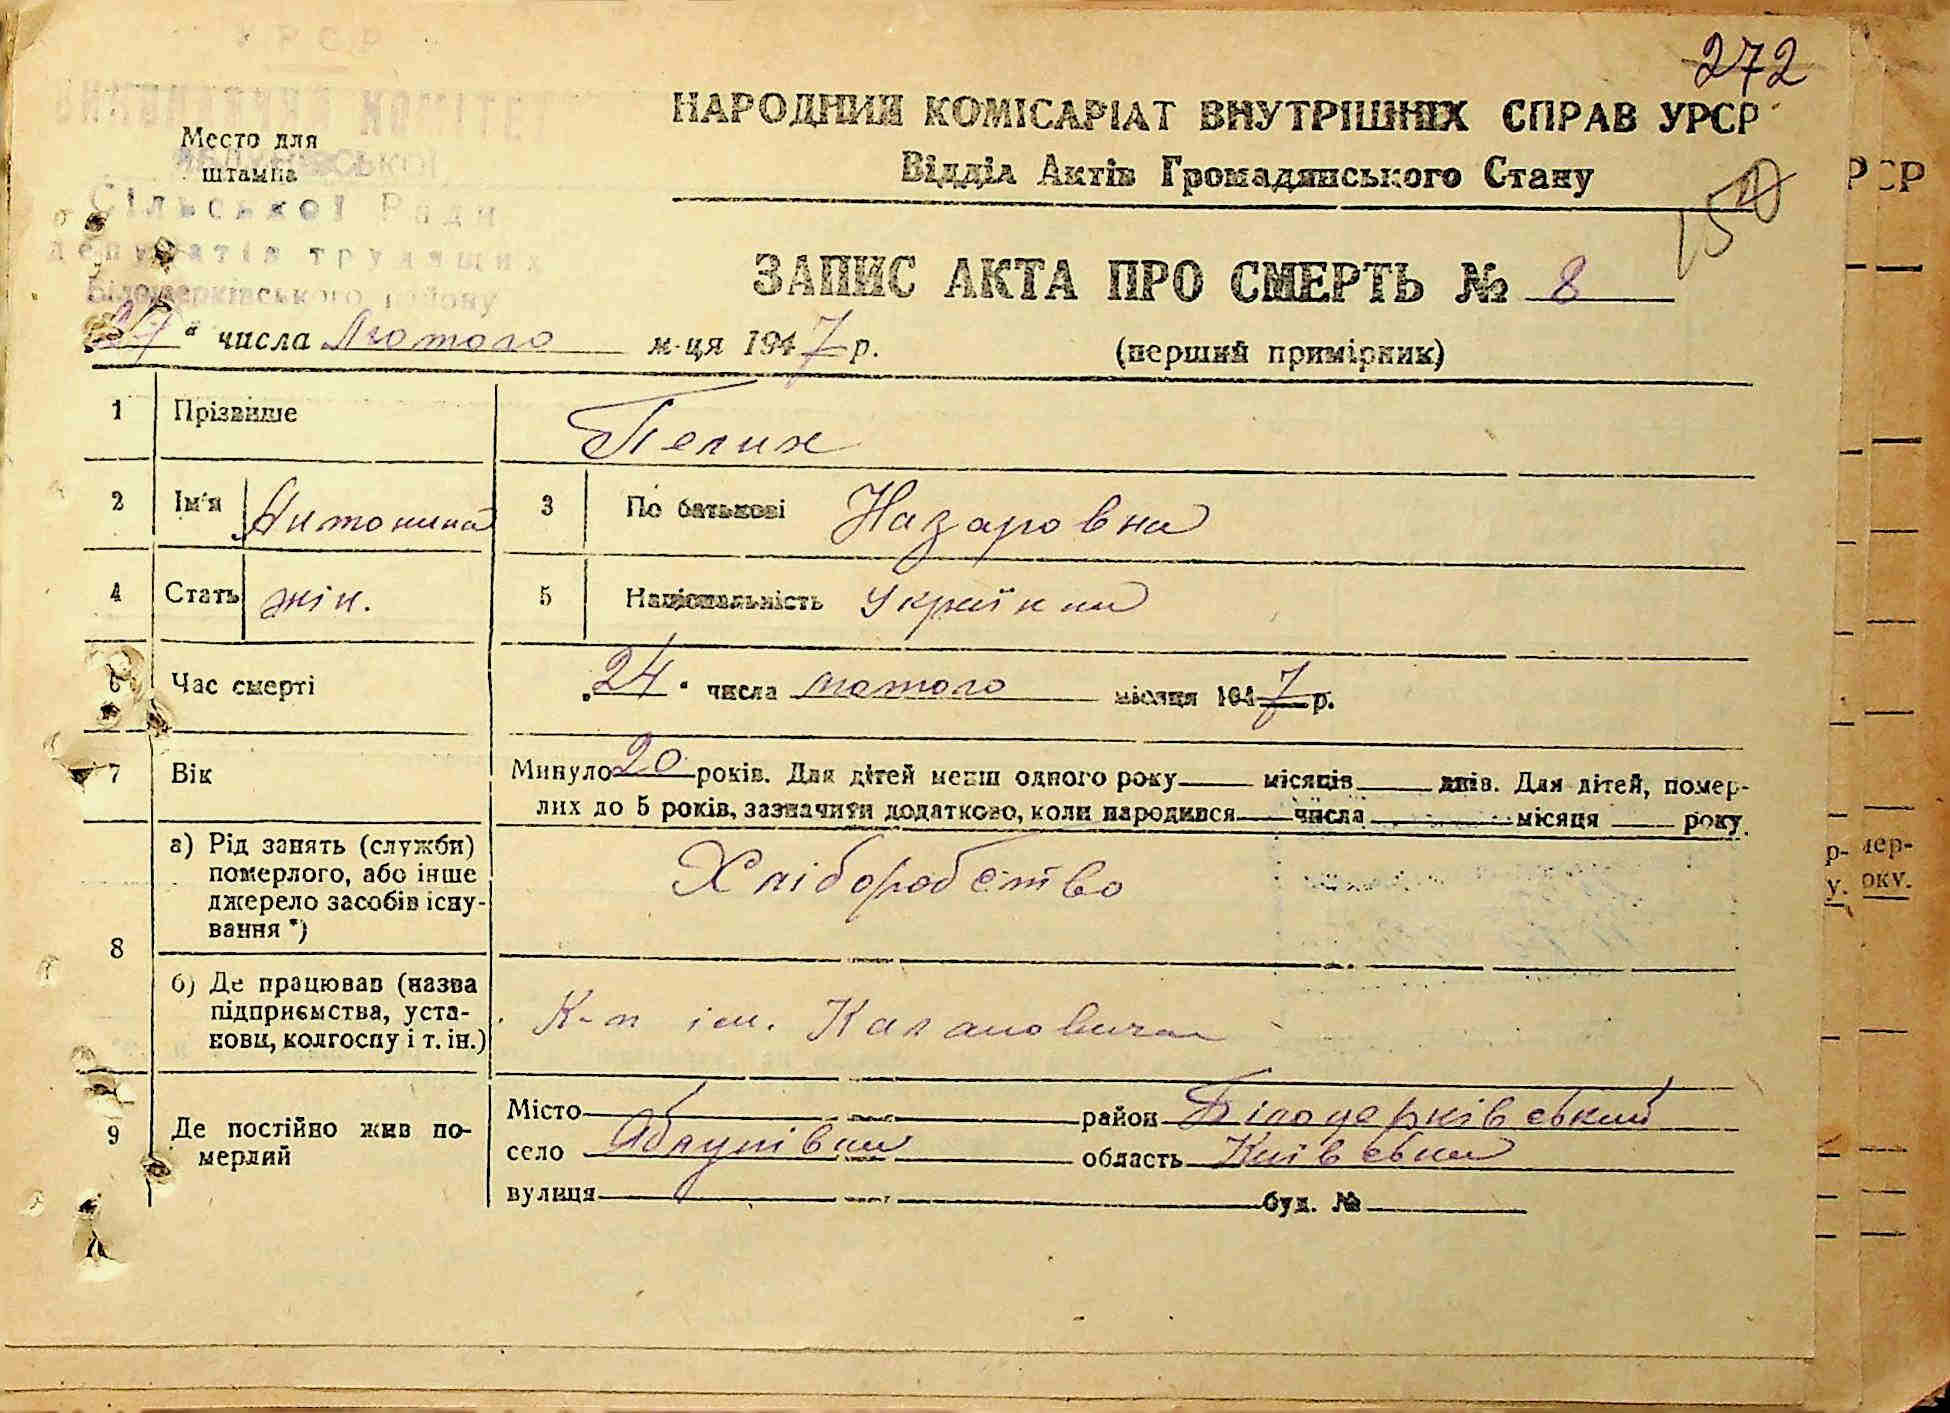 272
УРСР
ВИКОНАВЧИЙ КОМІТЕТ
НАРОДНИЙ КОМІСАРІАТ ВНУТРІШНІХ СПРАВ УРСР
Место для
штампа
Відділ Актів Громадянського Стану
Сільської Ради
депутатів трудящих
Білоцерківського району
150
ЗАПИС АКТА ПРО СМЕРТЬ № 8
27 " числа Лютого м-ця 1947 р.
(перший примірник)
1 Прізвище Пелих
2 Ім'я Антонина 3 По батькові Назаровна
4 Стать жін. 5 Національність Українка
6 Час смерті „24" числа лютого місяця 1947 р.
7 Вік Минуло 20 років. Для дітей менш одного року місяців днів. Для дітей, помер-
лих до 5 років, зазначити додатково, коли народився числа місяця року
8 а) Рід занять (служби)
померлого, або інше
джерело засобів існу-
вання *)
Хліборобство
б) Де працював (назва
підприємства, уста-
нови, колгоспу і т. ін.)
К-п ім. Кагановича
9 Де постійно жив по-
мерлий
Місто район Білоцерківський
село Яблунівка область Київська
вулиця буд. №
РСР
РСР
р-
у.
мер-
оку.